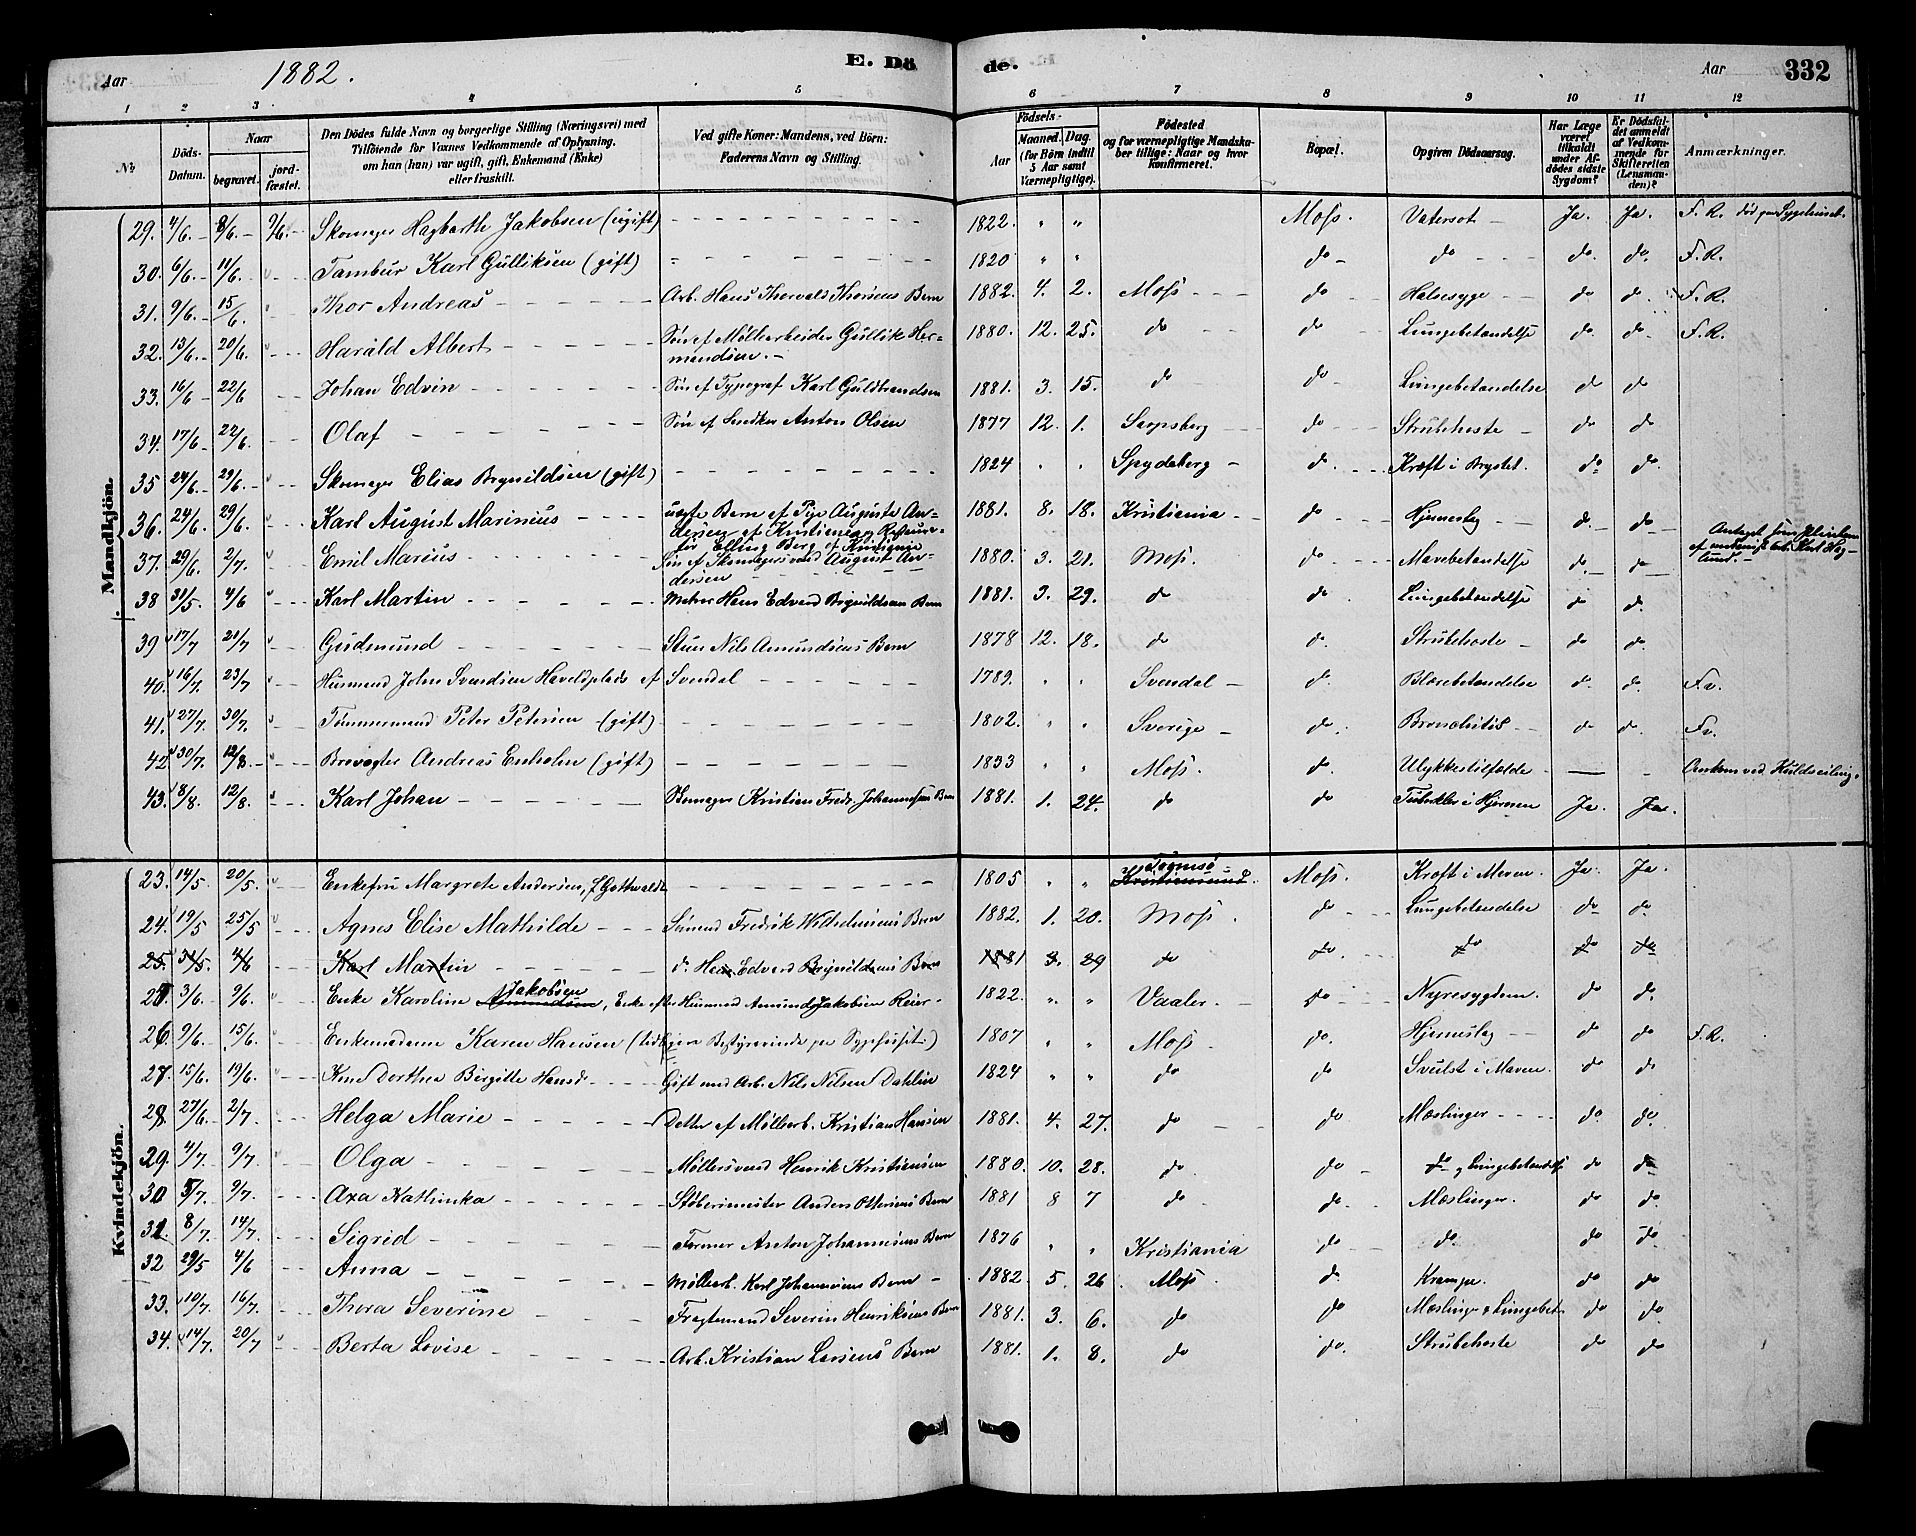 Aar 1882. E. Dö de. Aar 332
1 2 3 4 5 6 7 8 9 10 11 12
Nr. Döds-Datum. Naar begravet. jordfæstet. Den Dödes fulde Navn og borgerlige Stilling (Næringsvei) med Tilföiende for Voxnes Vedkommende af Oplysning, om han (hun) var ugift, gift, Enkemand (Enke) eller fraskilt. Ved gifte Koner: Mandens, ved Börn: Faderens Navn og Stilling. Födsels- Aar Maaned. Dag. (for Börn indtil 5 Aar samt Værnepligtige). Födested og for værnepligtige Mandskaber tillige: Naar og hvor konfirmeret. Bopæl. Opgiven Dödsaarsag. Har Læge været tilkaldt under Afdödes sidste Sygdom? Er Dödsfaldet anmeldt af Vedkommende for Skifteretten (Lensmanden)? Anmærkninger.
Mandkjön.
29. 4/6. 8/6. Skomager Hagbarth Jakobsen (ugift) 1822. " " Moss. Vatersot Ja. Ja. F. R. död paa Sygehuset.
30. 6/6. 11/6. Tambur Karl Gulliksen (gift) 1820 " " do do do. do. F. R.
31. 9/6. 15/6. Thor Andreas Arb. Hans Thorvald Thorsens Barn 1882. 4. 2. Moss do Halsesyge do do F. R.
32. 13/6. 20/6. Harald Albert Sön af Möllearbeider Gullik Hermandsen. 1880. 12. 25. do do Lungebetændelse do do F. R.
33. 16/6 22/6 Johan Edvin Sön af Typograf Karl Guldbrandsen 1881. 3. 15. do do Lungebetændelse do do
34. 17/6 22/6. Olaf Sön af Anton Olsen 1877 12. 1. Sarpsborg do Strubehoste do do
35 24/6. 29/6. Skomager Elias Brynildsen (gift) 1824 " " Spydeberg d. Kræft i Brystet. do do.
36. 24/6. 29/6. Karl August Marinius uægte Barn af Pige Augusta Andersen af Kristiania og Elling Berg af Kristiania 1881. 8. 18. Kristiania do Hjerneslag d. do Antaget som Pleiebarn af Arb. Karl
37. 29/6. 2/7. Emil Marius Sön af Skomagersvend August Andersen 1880. 3. 21. Moss. do Mavebetændelse do do
38 31/5. 4/6 Karl Martin Hans Edvard Brynildsens Barn 1881. 3. 29. do do. Lungebetændelse do d.
39 17/7 21/7 Gudmund Nils Amundsens Barn 1878 12. 18. do d. Strubehoste do do
40. 16/7. 23/7 Husmand John Svendsen af Svendal 1789. " " Svendal d. Blærebetændelse d. d. F. v.
41. 27/7. 30/7. Tömmermand Peter Petersen (gift) 1802. " " Sverige do. Bronchitis do do F. v.
42 30/7. 12/8. Brovogter Andreas Enholm (gift) 1833 " " Moss. d. Ulykkestilfælde
43. 8/8. 12/8. Karl Johan Skomager Kristian Fredr. Johannesens Barn 1881. 1. 24. do do Tuberkler i Hjernen Ja. Ja.
Kvindekjön.
23. 14/5. 20/5. Enkefru Margrete Andersen, f. Gottwaldt 1805 " " Tromsö Kristiansund. Moss. Kræft i Maven. Ja. Ja.
24. 19/5 25/5 Agnes Elise Mathilde Sömand Fredrik Wilhelmsens Barn 1882. 1. 20. Moss. do Lungebetændelse do do.
25. 31/5. 4/6 Karl Martin d. Hans Edvard Brynildsens Barn 1881 3. 29 do do do do do
25 3/6. 9/6. Enke Karoline Jakobsen Amundsen, Enke efter Husmand Amund Jakobsen Reier 1822. " " Vaaler. do Nyresygdom. do do.
26. 9/6. 15/6. Enkemadame Karen Hansen (tidligere Bestyrerinde paa Sygehuset.) 1807 " " Moss. do. Hjerneslag do do F. R.
27. 15/6. 19/6. Kone Dorthea Birgitte Hansd. Gift med Arb. Nils Nilsen Dahlin 1824 " " do do Svulst i Maven. do do
28. 27/6. 2/7. Helga Marie Datter af Möllearb. Kristian Hansen 1881. 4. 27. do do Mæslinger do. do.
29. 4/7. 9/7. Olga Möllersvend Henrik Kristiansen 1880. 10. 28. do. do do og Lungebetændelse do do
30 5/7. 9/7. Axa Kathinka Stöberimester Anders Ottersens Barn 1881 8 7 do do. Mæslinger. do do.
31. 8/7. 14/7. Sigrid Former Anton Johannesens Barn 1876 " " Kristiania do do. do do
32 29/5 4/6 Anna Möllearb. Karl Johannesens Barn 1882. 5. 26 Moss. d. Krampe. do do
33. 10/7. 16/7. Thora Severine Fragtemand Severin Henriksens Barn 1881. 3. 6. do do Mæslinger & Lungebet. do do
34. 14/7. 20/7 Berta Lovise Arb. Kristian Larsens Barn 1881. 1. 8. do do. Strubehoste do do